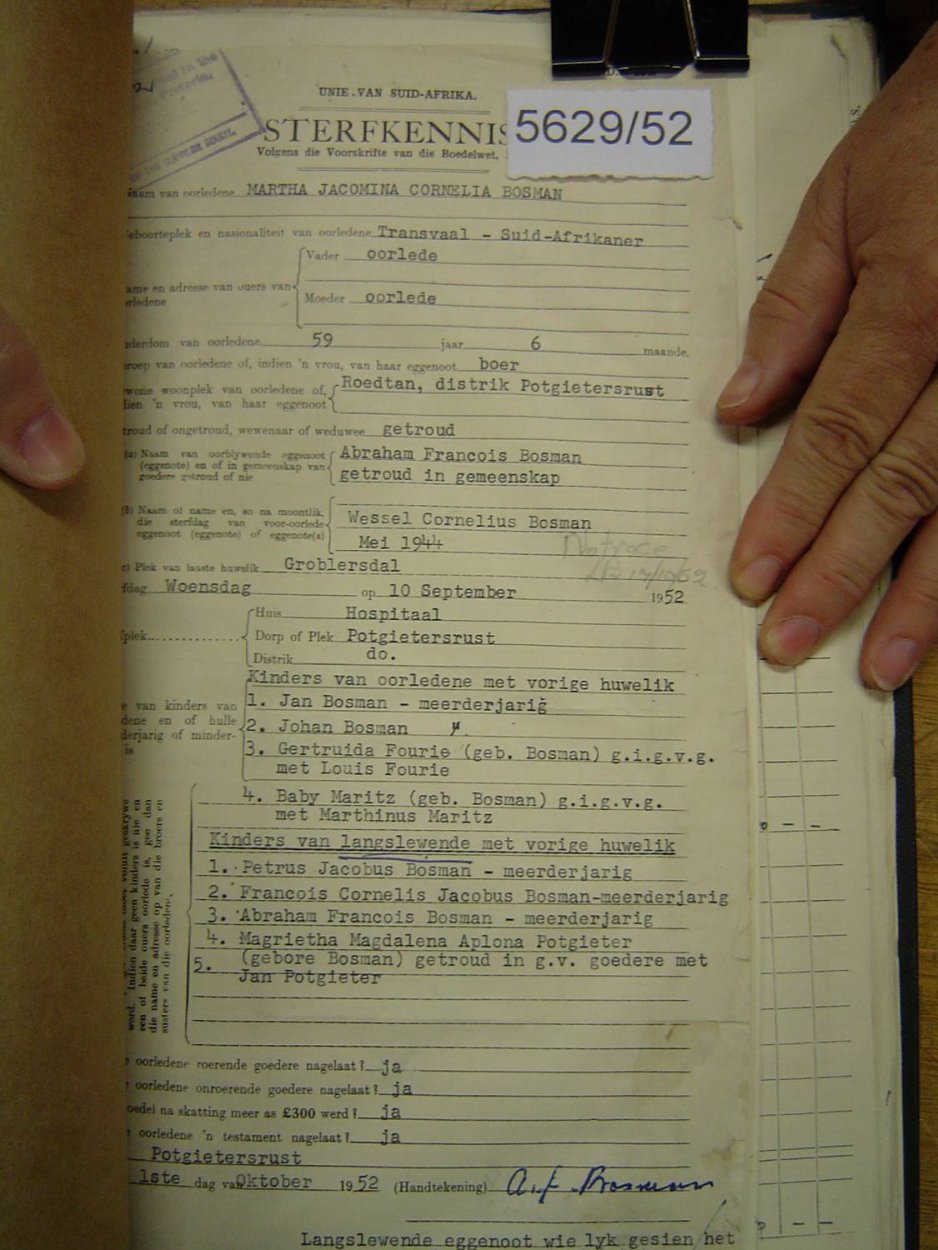 UNIE VAN SUID-AFRIKA.
STERFKENNIS
5629/52
Volgens die Voorskrifte van die Boedelwet,
Naam van oorledene MARTHA JACOMINA CORNELIA BOSMAN
eboorteplek en nasionaliteit van oorledene Transvaal - Suid-Afrikaner
Vader oorlede
ame en adresse van ouers van
rledene
Moeder oorlede
derdom van oorledene 59 jaar 6 maande.
eroep van oorledene of, indien 'n vrou, van haar eggenoot boer
wone woonplek van oorledene of, Roedtan, distrik Potgietersrust
dien 'n vrou, van haar eggenoot
troud of ongetroud, wewenaar of weduwee getroud
(a) Naam van oorblywende eggenoot Abraham Francois Bosman
(eggenote) en of in gemeenskap van
goedere getroud of nie getroud in gemeenskap
(b) Naam of name en, so na moontlik,
die sterfdag van voor-oorlede Wessel Cornelius Bosman
eggenoot (eggenote) of eggenote(s) Mei 1944
c) Plek van laaste huwelik Groblersdal
fdag Woensdag op 10 September 1952
Huis Hospitaal
plek Dorp of Plek Potgietersrust
Distrik do.
Kinders van oorledene met vorige huwelik
e van kinders van 1. Jan Bosman - meerderjarig
dene en of hulle 2. Johan Bosman
derjarig of minder-
is 3. Gertruida Fourie (geb. Bosman) g.i.g.v.g.
met Louis Fourie
4. Baby Maritz (geb. Bosman) g.i.g.v.g.
met Marthinus Maritz
Kinders van langslewende met vorige huwelik
1. Petrus Jacobus Bosman - meerderjarig
2. Francois Cornelis Jacobus Bosman-meerderjarig
3. Abraham Francois Bosman - meerderjarig
4. Magrietha Magdalena Aplona Potgieter
5. (gebore Bosman) getroud in g.v. goedere met
Jan Potgieter
word. Indien daar geen kinders is nie en
een of beide ouers oorlede is, gee dan
die name en adresse op van die broers en
susters van die oorledene.
e oorledene roerende goedere nagelaat? ja
oorledene onroerende goedere nagelaat? ja
oedel na skatting meer as £300 werd? ja
e oorledene 'n testament nagelaat? ja
Potgietersrust
1ste dag van Oktober 1952 (Handtekening) A.f. Bosman
Langslewende eggenoot wie lyk gesien het